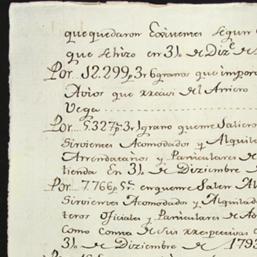 que quedaron Existentes segun
que se hizo en 31,, de Diz.e de
Por 12.299,,p 3,,r 6 granos que impor
Avios que rrecav del Arriero
Vega
Por 5.327,,p 3,,r 1 grano que me Saliero
Sirvientes Acomodados y Alquila
Arrendatarios y Particulares de
tienda En 31,, de Diciembre de
Por 7.766,,p 5,,r en que me Salen Al
Sirvientes Acomodados y Alquilad
teros Oficiales y Particulares de
Como Consta de sus rrespectivas
31,, de Diciembre de 1793